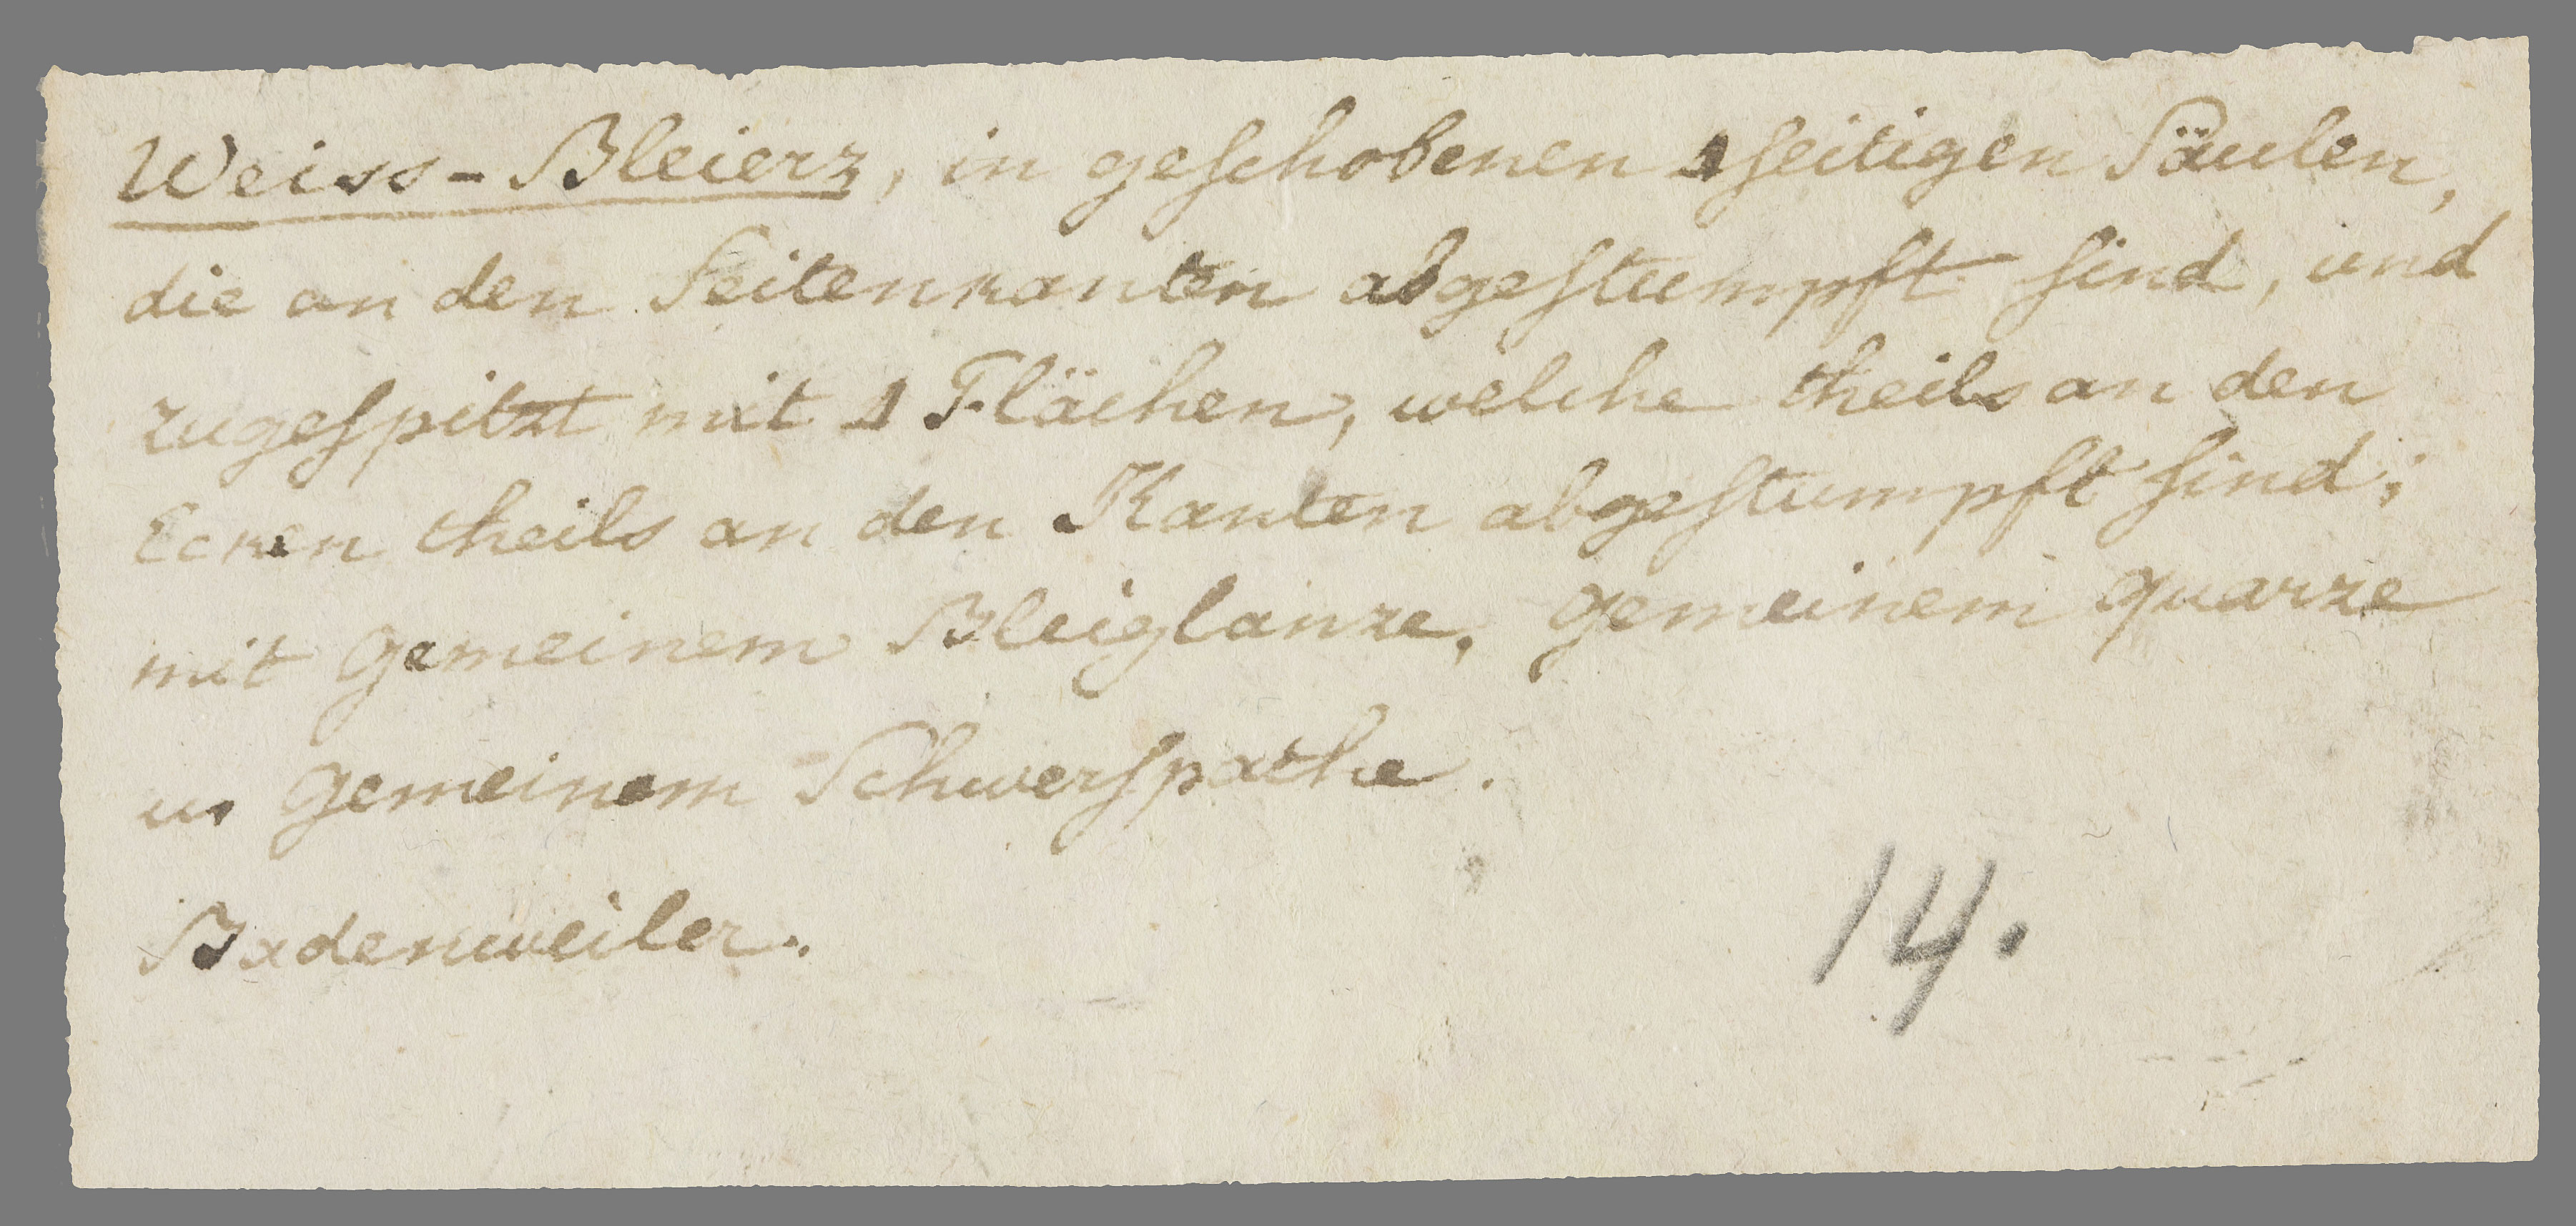 Weiss-Bleierz, in geſchobenen 4ſeitigen Säulen,
die an den Seitenkanten abgeſtumpft ſind, und
zugeſpitzt mit 4 Flächen, welche theils an den
Ecken theils an den Kanten abgeſtumpft ſind;
mit gemeinem Bleiglanze, gemeinem quarze
u. gemeinem Schwerſpathe.
Badenweiler.
14.